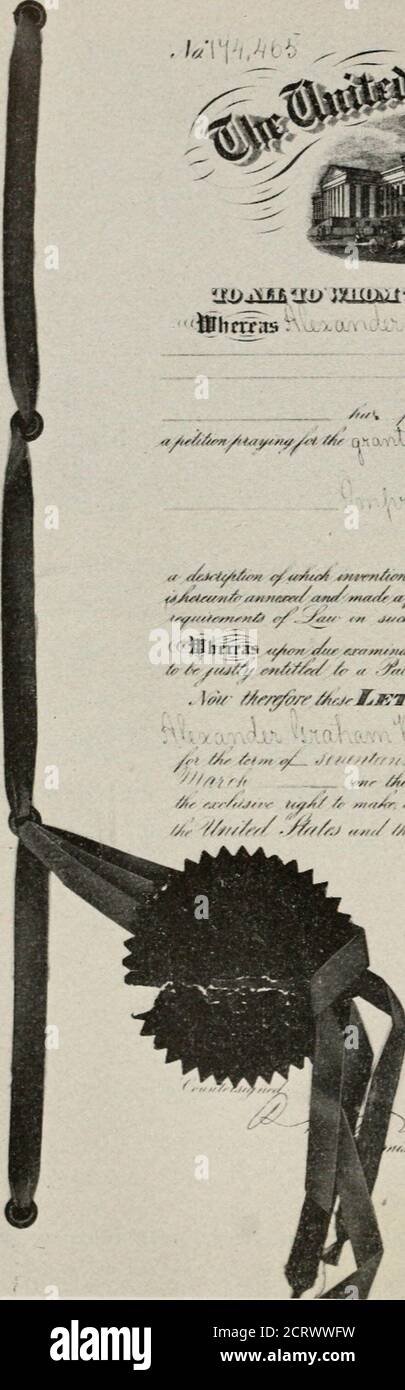 No. 174,465
The United
TO ALL TO WHOM
Whereas Alexander
has
a petition praying for the grant
Impr
a description of which invention
is hereunto annexed and made a
requirements of Law in such
Whereas upon due examin
to be justly entitled to a Pat
Now therefore these LET
Alexander Graham
for the term of seventeen
March one th
the exclusive right to make,
the United States and th
Countersigned
a
alamy
Image ID: 2CRWWFW
www.alamy.com